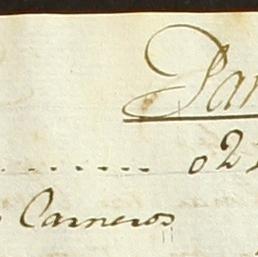 Par
........ 02
Carneros